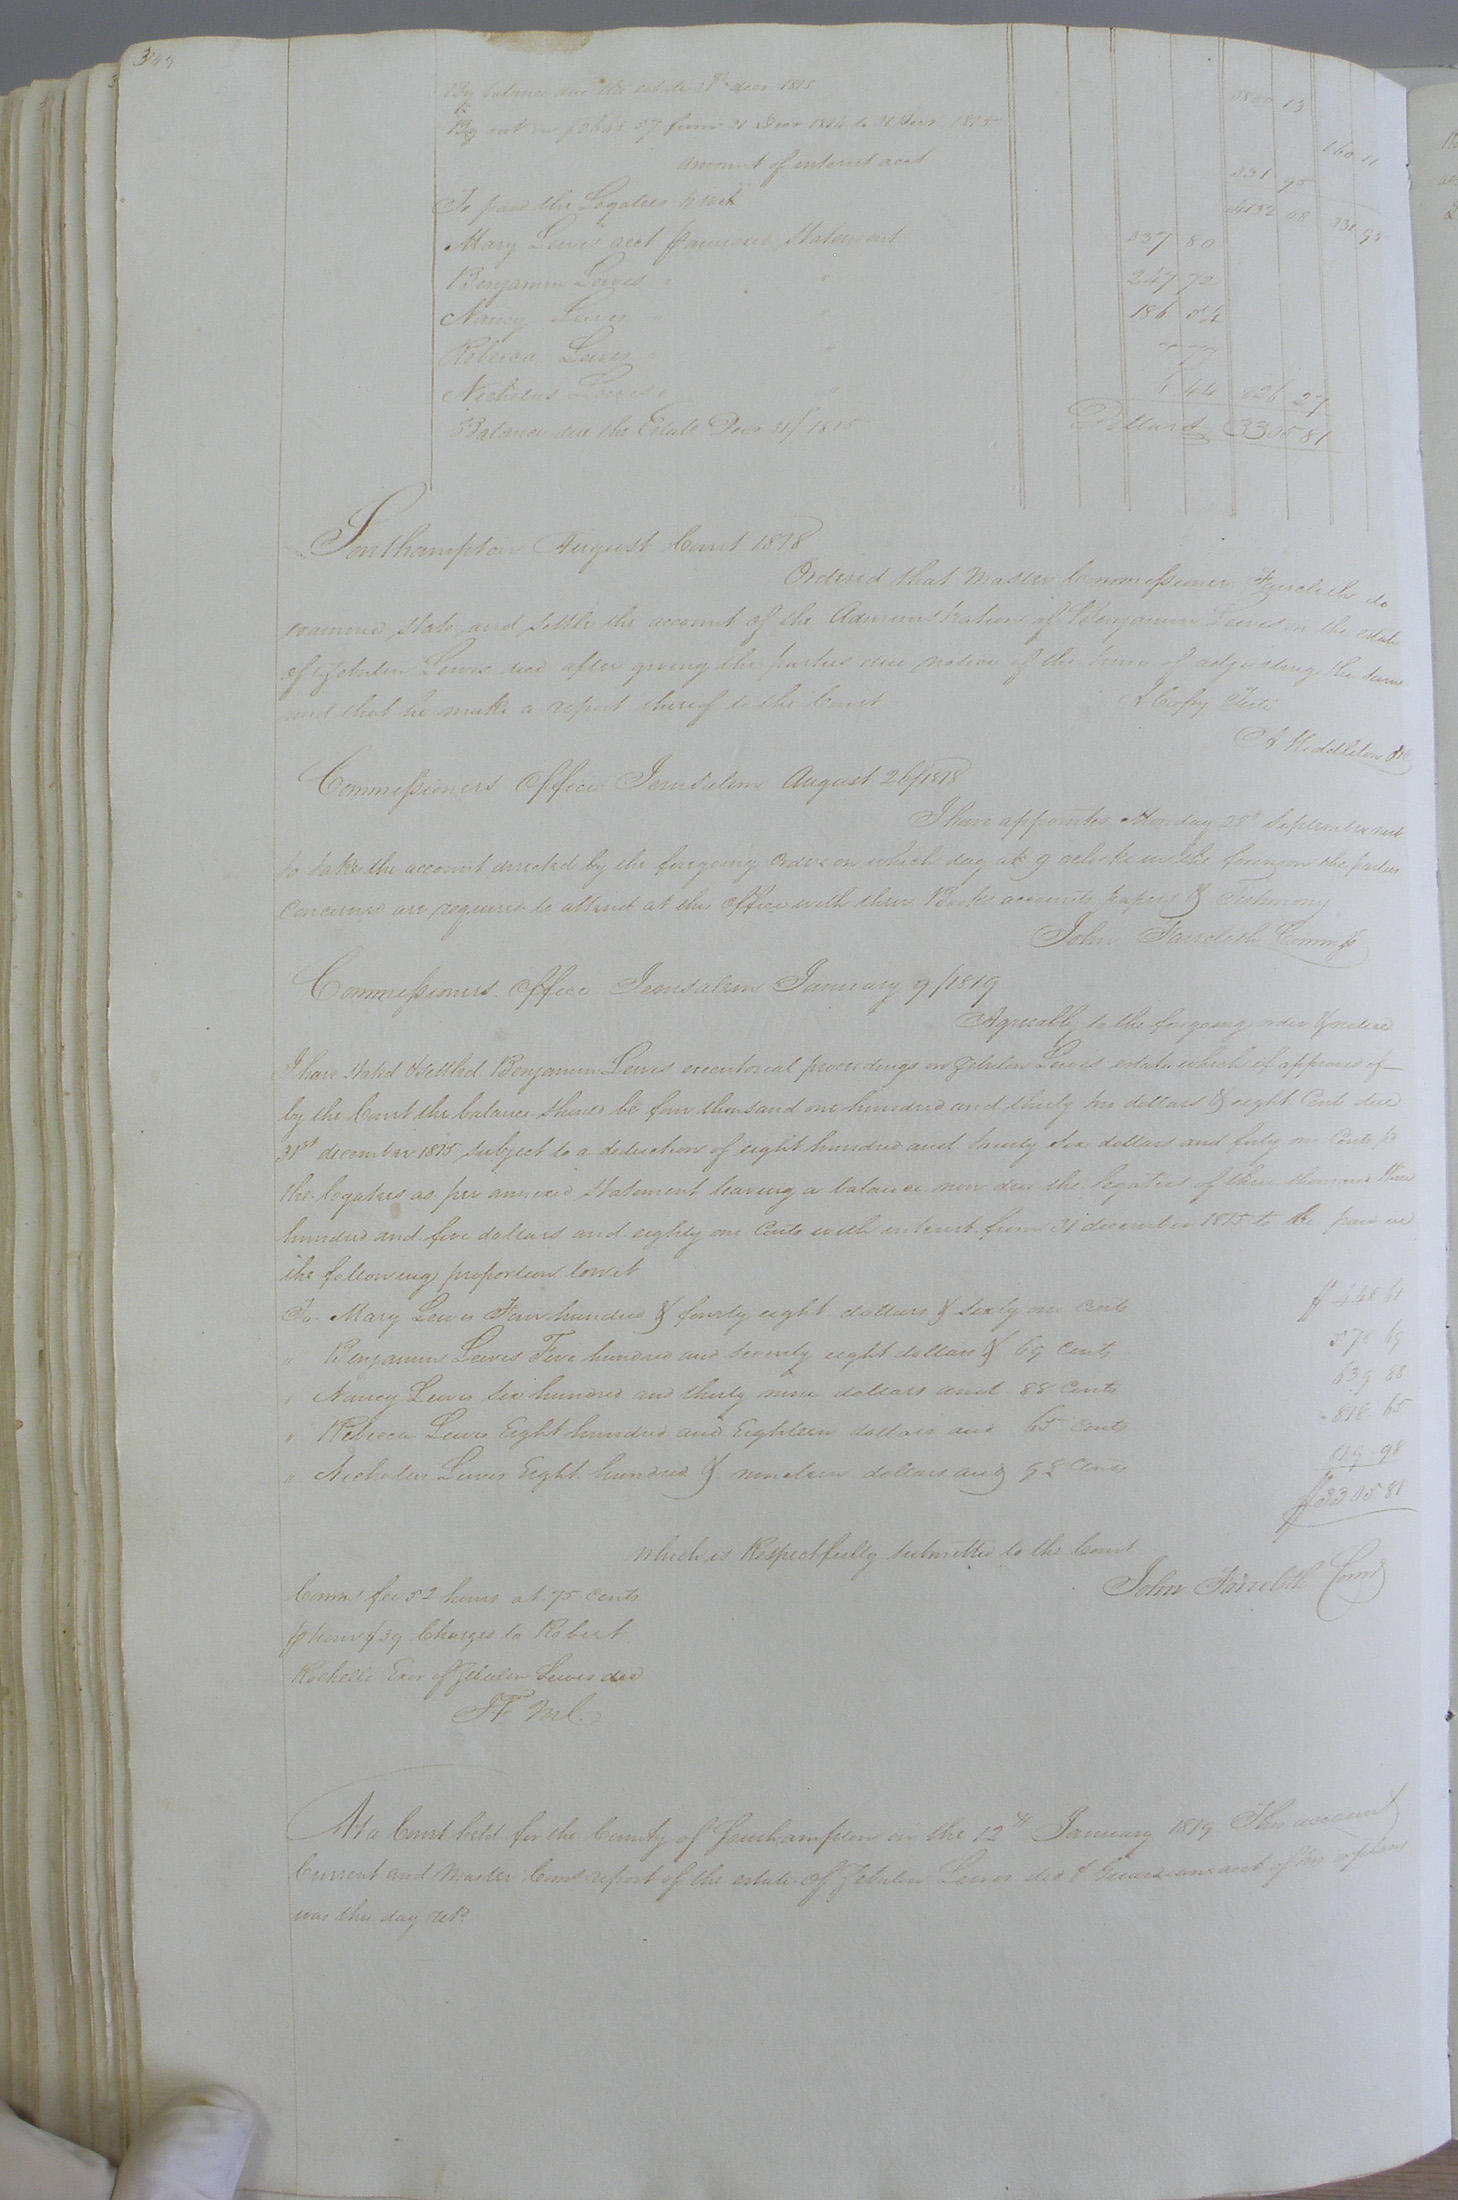 By balance due the estate 31st decr 1815 3800 13
By int on from 31 Decr 1814 to 31 Decr 1815 160 11
amount of interest acct 331 95
4132 08 331 95
To paid the Legatees towit
Mary Lewis acct pr annexed Statement 337 80
Benjamin Lewis " " 247 72
Nancy Lewis " " 186 54
Rebecca Lewis " " 7 77
Nicholas Lewis " " 6 44 826 27
Balance due the Estate Decr 31/1815 Dollars 3305 81
Southampton August Court 1818
Ordered that Master Commissioner Faircloth do
examine, state, and settle the account of the Administration of Benjamin Lewis on the estate
of Zebulon Lewis decd after giving the parties due notice of the time of adjusting the same
and that he make a report thereof to the Court
A Copy Teste
A Middleton DC
Commissioners Office Jerusalem August 26/1818
I have appointed Monday 28th September next
to take the account directed by the foregoing Order on which day at 9 oclock in the forenoon the parties
concerned are required to attend at this Office with their Books accounts papers & Testimony
John Faircloth Commr
Commissioners Office Jerusalem January 9/1819
Agreeably to the foregoing order & notice
I have stated & settled Benjamin Lewis executorial proceedings on Zebulon Lewis estate which if approved of
by the Court the balance shoud be four thousand one hundred and thirty two dollars & eight Cent due
31st december 1815 subject to a deduction of eight hundred and twenty six dollars and forty one Cents pd
the legatees as per annexed statement leaving a balance now due the legatees of three thousand three
hundred and five dollars and eighty one Cents with interest from 31 december 1815 to be paid in
the following proportion towit
To Mary Lewis Four hundred & fourty eight dollars & sixty one Cents $448 61
" Benjamin Lewis Five hundred and seventy eight dollars & 69 Cents 578 69
" Nancy Lewis Six hundred and thirty nine dollars and 88 Cents 639 88
" Rebecca Lewis Eight hundred and Eighteen dollars and 65 Cents 818 65
" Nicholas Lewis Eight hundred & nineteen dollars and 98 Cents 819 98
$3305 81
which is Respectfully submitted to the Court
John Faircloth Comr
Comrs fee 52 hours at 75 Cents
pr hour $39 Charged to Robert
Rochelle Exor of Zebulon Lewis decd
JF MC
At a Court held for the County of Southampton on the 12th January 1819 This account
Current and Master Coms report of the estate of Zebulon Lewis decd & Guardians acct of his orphans
was this day retd